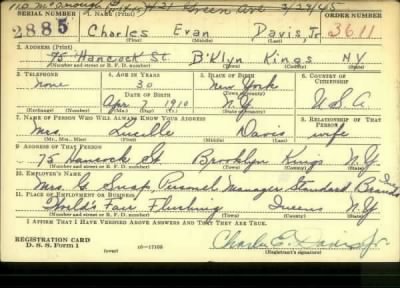 Green Ave 3/29/45
SERIAL NUMBER 1. NAME (Print) ORDER NUMBER
2885 Charles Evan Davis, Jr 3611
(First) (Middle) (Last)
2. ADDRESS (Print)
75 Hancock St. B'klyn Kings NY
(Number and street or R. F. D. number) (Town) (County) (State)
3. TELEPHONE 4. AGE IN YEARS 5. PLACE OF BIRTH 6. COUNTRY OF CITIZENSHIP
none 30 New York
DATE OF BIRTH (Town or county)
Apr 7 1910 N.Y. U.S.A
(Exchange) (Number) (Mo.) (Day) (Yr.) (State or country)
7. NAME OF PERSON WHO WILL ALWAYS KNOW YOUR ADDRESS 8. RELATIONSHIP OF THAT PERSON
Mrs. Lucille Davis wife
(Mr., Mrs., Miss) (First) (Middle) (Last)
9. ADDRESS OF THAT PERSON
75 Hancock St Brooklyn Kings N.Y.
(Number and street or R. F. D. number) (Town) (County) (State)
10. EMPLOYER'S NAME
Mrs. G. Personel Manager Standard Brands Inc
11. PLACE OF EMPLOYMENT OR BUSINESS
World's Fair Flushing Queens N.Y.
(Number and street or R. F. D. number) (Town) (County) (State)
I AFFIRM THAT I HAVE VERIFIED ABOVE ANSWERS AND THAT THEY ARE TRUE.
REGISTRATION CARD
D. S. S. Form 1 (over) 16—17105 Charles E. Davis Jr.
(Registrant's signature)